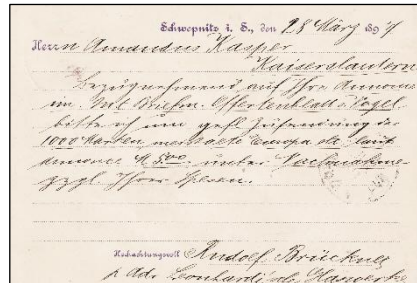 Schwepnitz i. S., den 28 März 1897
Herrn Amandus Kasper
Kaiserslautern
Bezugnehmend auf Ihre Annonce
im Brieftm. Offertenblatt v. Vogel
bitte ich um gefl. Zusendung der
1000 Marken Europa etc laut
Annonce M 5 00 unter Nachnahme
zzgl. Ihrer Spesen.
Hochachtungsvoll Rudolf Brückner
p. Adr. Leonhardi